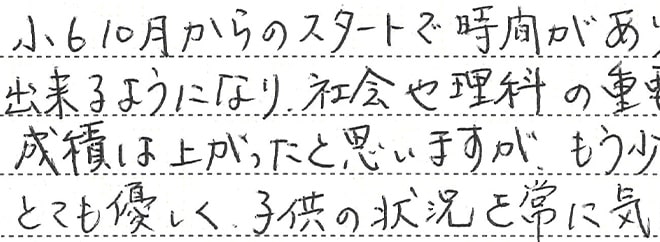 小6 10月からのスタートで時間があ
出来るようになり、社会や理科の重
成績は上がったと思いますが、もう少
とても優しく、子供の状況を常に気